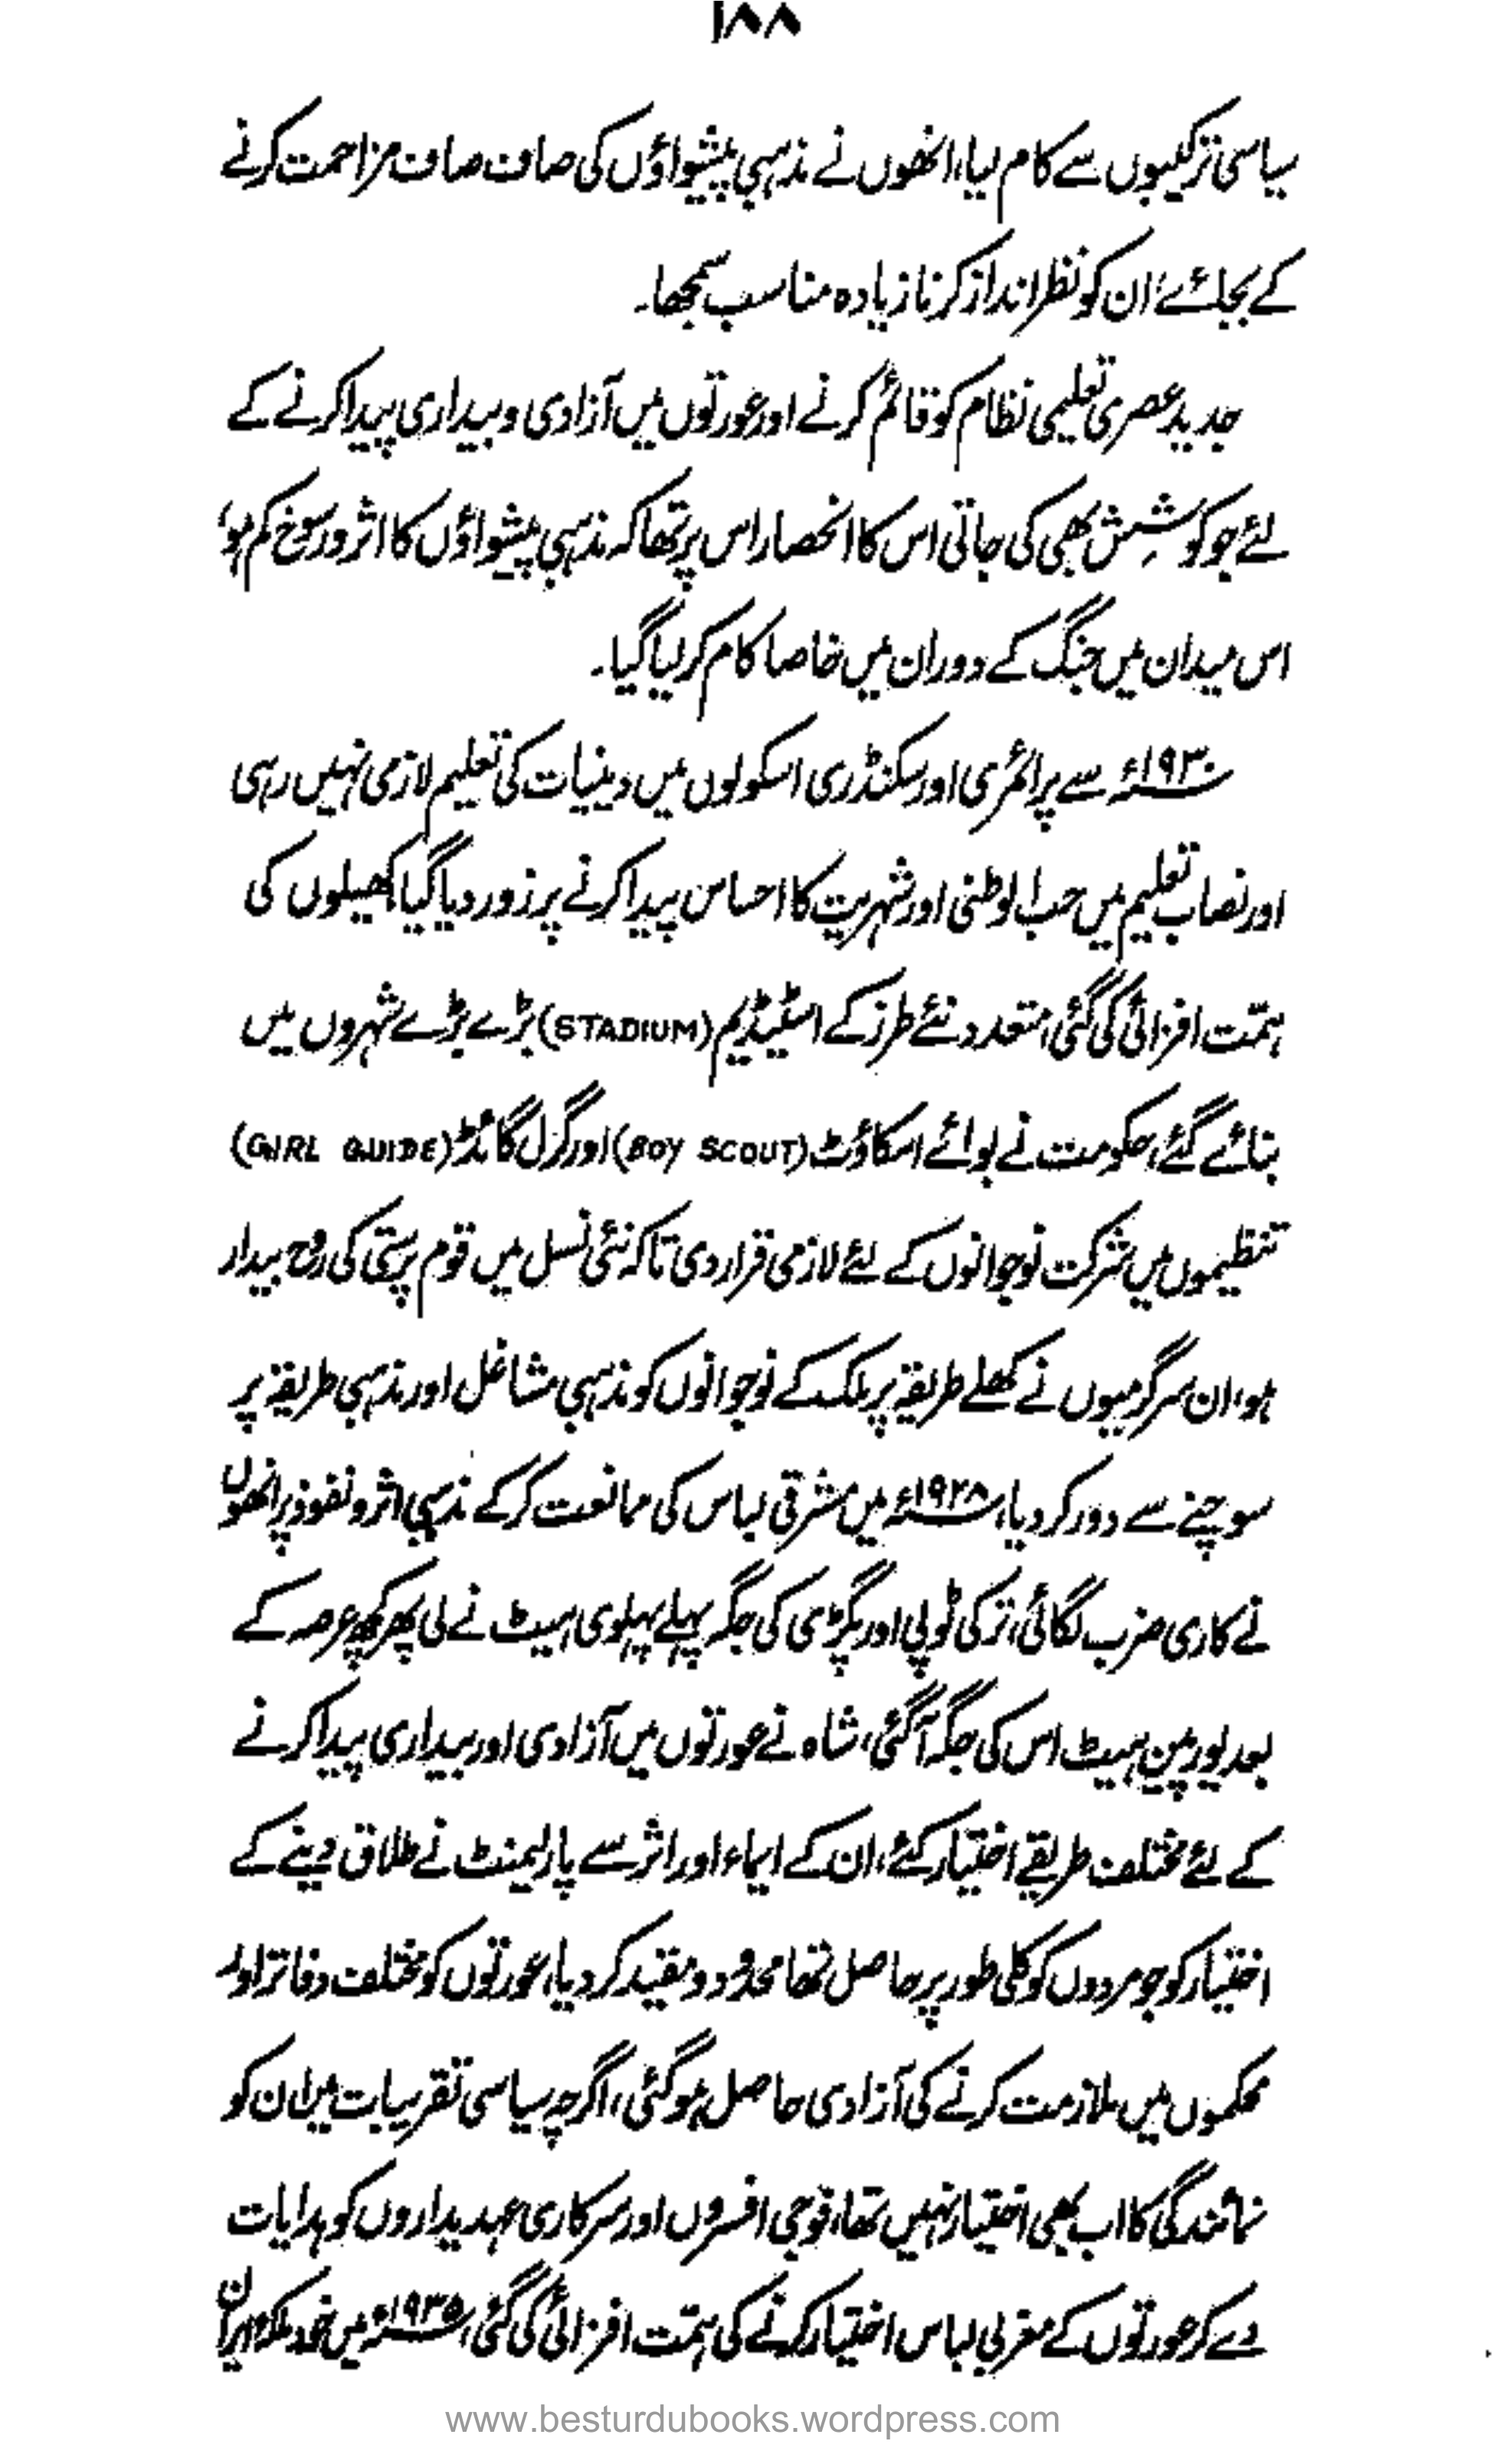 ۱۸۸
سیاسی ترکیبوں سے کام لیا، انھوں نے مذہبی پیشواؤں کی صاف صاف مزاحمت کرنے
کے بجائے ان کو نظر انداز کرنا زیادہ مناسب سمجھا۔
جدید عصری تعلیمی نظام کو قائم کرنے اور عورتوں میں آزادی و بیداری پیدا کرنے کے
لئے جو کوشِش بھی کی جاتی اس کا انحصار اس پر تھا کہ مذہبی پیشواؤں کا اثر و رسوخ کم ہو،
اس میدان میں جنگ کے دوران میں خاصا کام کر لیا گیا۔
۱۹۳۰ء سے پرائمری اور سکنڈری اسکولوں میں دینیات کی تعلیم لازمی نہیں رہی
اور نصاب تعلیم میں حب الوطنی اور شہریت کا احساس پیدا کرنے پر زور دیا گیا، کھیلوں کی
ہمّت افزائی کی گئی، متعدد نئے طرز کے اسٹیڈیم (STADIUM) بڑے بڑے شہروں میں
بنائے گئے، حکومت نے بوائے اسکاؤٹ (BOY SCOUT) اور گرل گائڈ (GIRL GUIDE)
تنظیموں میں شرکت نوجوانوں کے لئے لازمی قرار دی تاکہ نئی نسل میں قوم پرستی کی روح بیدار
ہو، ان سرگرمیوں نے کھلے طریقہ پر ملک کے نوجوانوں کو مذہبی مشاغل اور مذہبی طریقہ پر
سوچنے سے دور کر دیا، ۱۹۲۸ء میں مشرقی لباس کی ممانعت کر کے مذہبی اثر و نفوذ پر انھوں
نے کاری ضرب لگائی، ترکی ٹوپی اور پگڑی کی جگہ پہلے پہلوی ہیٹ نے لی پھر کچھ عرصہ کے
بعد یورپین ہیٹ اس کی جگہ آ گئی، شاہ نے عورتوں میں آزادی اور بیداری پیدا کرنے
کے لئے مختلف طریقے اختیار کئے، ان کے ایماء اور اثر سے پارلیمنٹ نے طلاق دینے کے
اختیار کو جو مردوں کو کلی طور پر حاصل تھا محدود و مقید کر دیا، عورتوں کو مختلف دفاتر اور
محکموں میں ملازمت کرنے کی آزادی حاصل ہو گئی، اگرچہ سیاسی تقریبات میں ان کو
نمائندگی کا اب بھی اختیار نہیں تھا، فوجی افسروں اور سرکاری عہدیداروں کو ہدایات
دے کر عورتوں کے مغربی لباس اختیار کرنے کی ہمّت افزائی کی گئی، ۱۹۳۵ء میں خود ملکۂ ایران
www.besturdubooks.wordpress.com